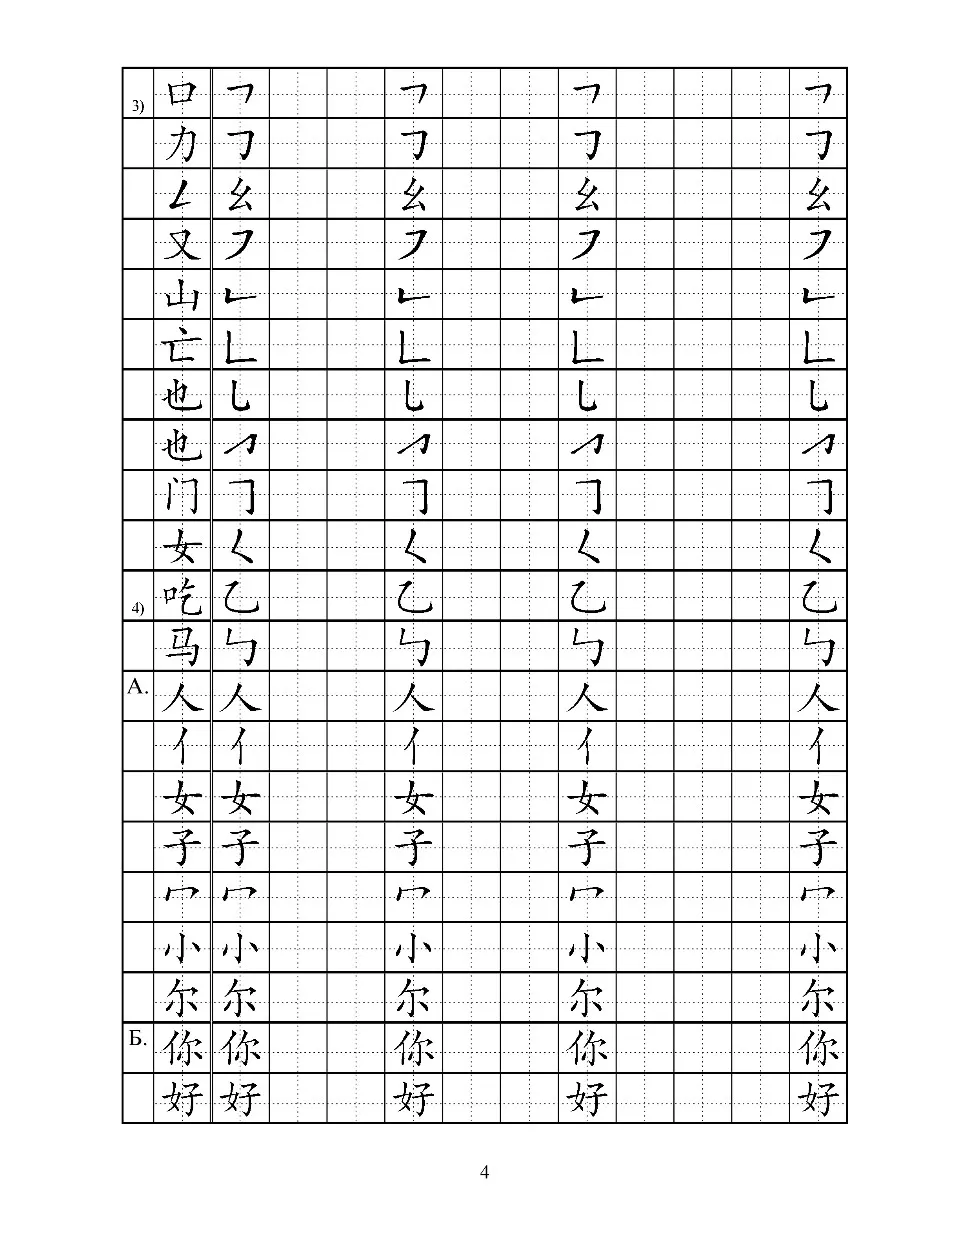 3) 口 ㇕ ㇕ ㇕ ㇕
力 𠃌 𠃌 𠃌 𠃌
𠃋 幺 幺 幺 幺
又 ㇇ ㇇ ㇇ ㇇
山 ㇗ ㇗ ㇗ ㇗
亡 𠃊 𠃊 𠃊 𠃊
也 ㇟ ㇟ ㇟ ㇟
也 ㇆ ㇆ ㇆ ㇆
门 𠃌 𠃌 𠃌 𠃌
女 ㇛ ㇛ ㇛ ㇛
4) 吃 乙 乙 乙 乙
马 ㇉ ㇉ ㇉ ㇉
А. 人 人 人 人 人
亻 亻 亻 亻 亻
女 女 女 女 女
子 子 子 子 子
冖 冖 冖 冖 冖
小 小 小 小 小
尔 尔 尔 尔 尔
Б. 你 你 你 你 你
好 好 好 好 好
4